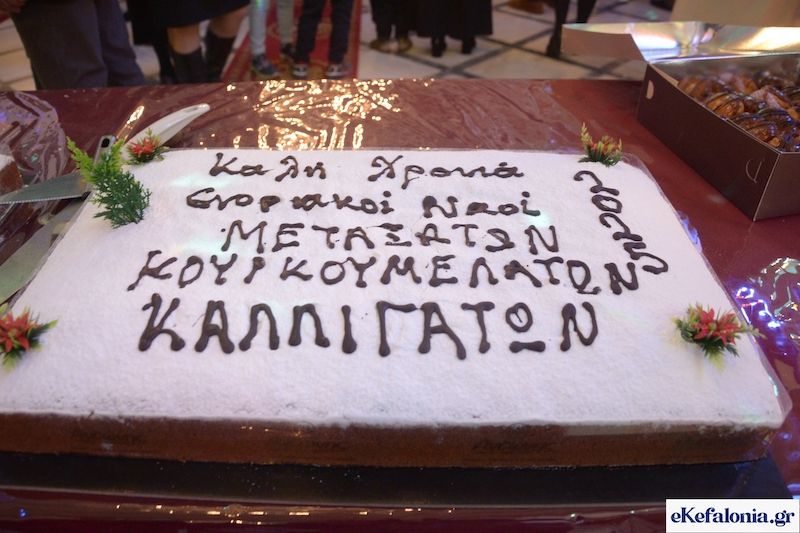 Καλή Χρονιά
Ενοριακοί Ναοί
ΜΕΤΑΞΑΤΩΝ
ΚΟΥΡΚΟΥΜΕΛΑΤΩΝ
ΚΑΛΛΙΓΑΤΩΝ
2025
eKefalonia.gr